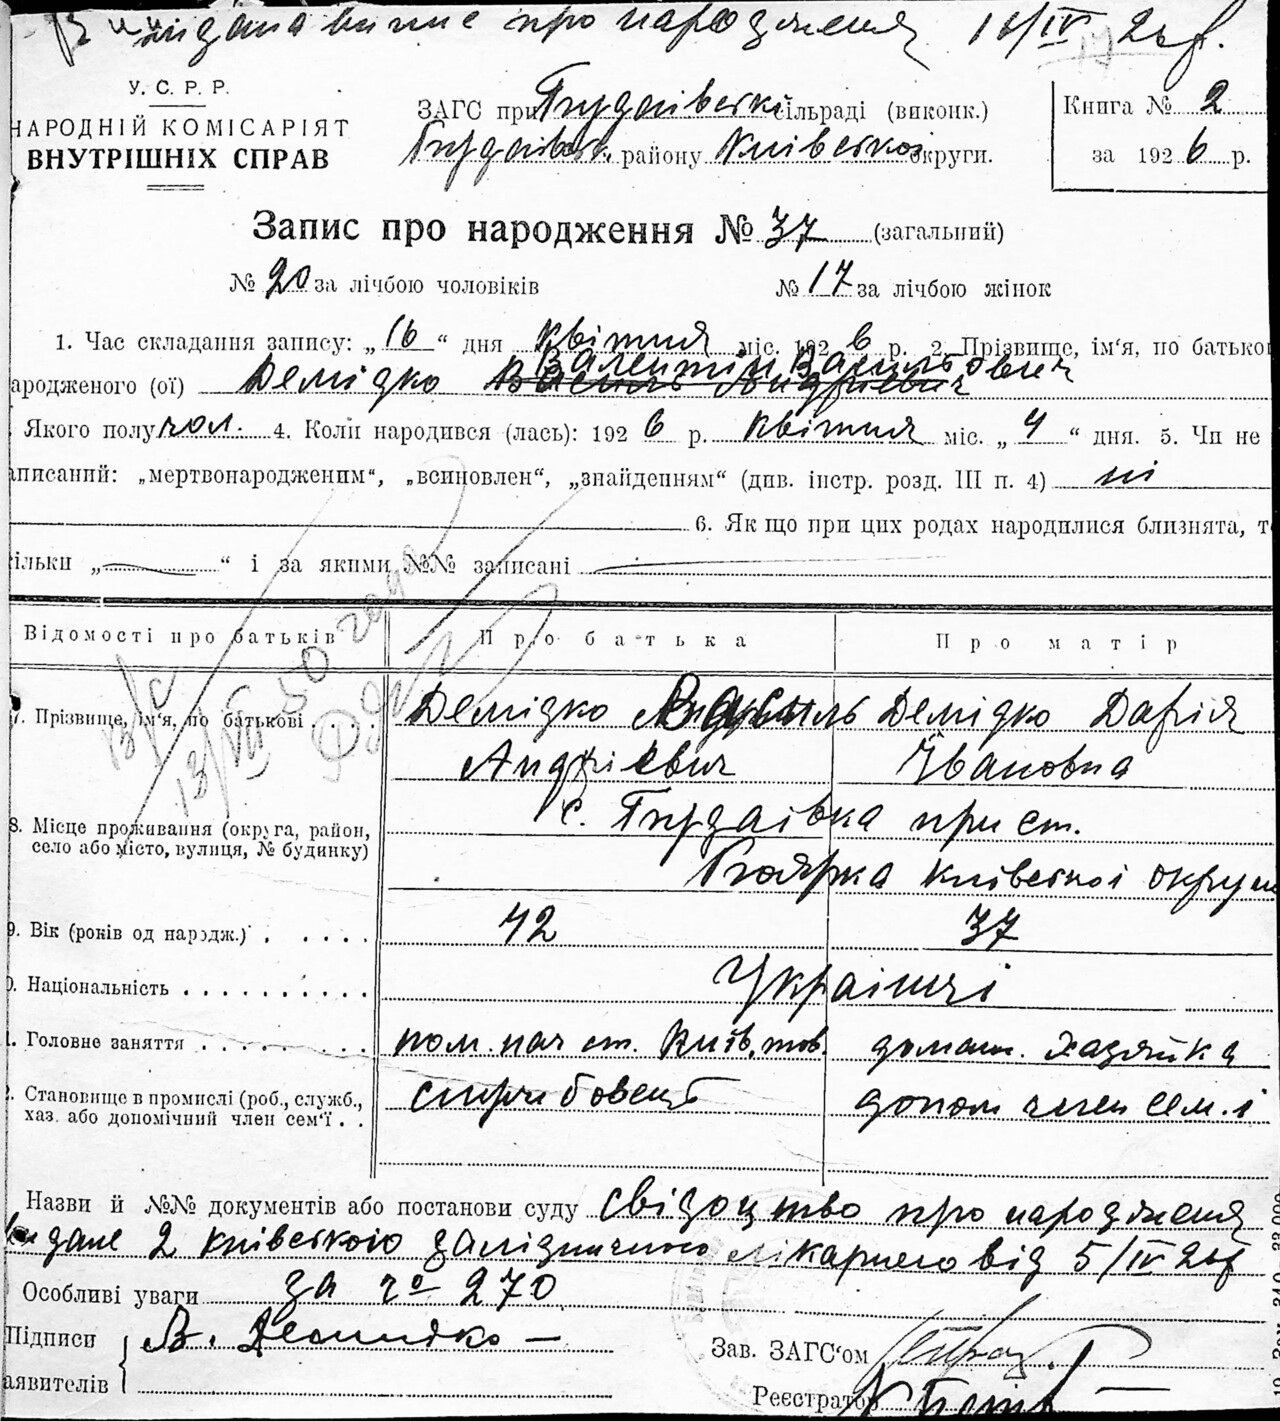 видана виписка про народження 16/IV 26 р.
У. С. Р. Р.
НАРОДНІЙ КОМІСАРІЯТ
ВНУТРІШНІХ СПРАВ
ЗАГС при Будаївській сільраді (виконк.)
Будаївськ. району Київської округи.
Книга № 2
за 1926 р.
Запис про народження № 37 (загальний)
№ 20 за лічбою чоловіків № 17 за лічбою жінок
1. Час складання запису: „16“ дня квітня міс. 1926 р. 2. Прізвище, ім'я, по батько
Валентін Васильович
ародженого (ої) Демідко Василь Андрієвич
Якого полу чол. 4. Коли народився (лась): 1926 р. квітня міс. „4“ дня. 5. Чи не
аписаний: „мертвонародженим“, „всиновлен“, „знайденням“ (див. інстр. розд. III п. 4) ні
6. Як що при цих родах народилися близнята, т
ільки „ “ і за якими №№ записані
Відомості про батьків Про батька Про матір
7. Прізвище, ім'я, по батькові Демідко Василь Демідко Дарія
Андрієвич Івановна
8. Місце проживання (округа, район,
село або місто, вулиця, № будинку)
с. Будаівка при ст.
Боярка Київської округи
9. Вік (років од народж.) 42 37
Національність Українці
Головне заняття пом. нач. ст. Київ. тов. домаш. хазяйка
Становище в промислі (роб., служб.,
хаз. або допомічний член сем'ї
службовець допом член сем.і
13/VII 50 года
Назви й №№ документів або постанови суду свідоцтво про народження
видане 2 київською залізничною лікарнею від 5/IV 26 р
Особливі уваги за № 270
Підписи В. Демидко
аявителів
Зав. ЗАГС'ом
Реєстратор